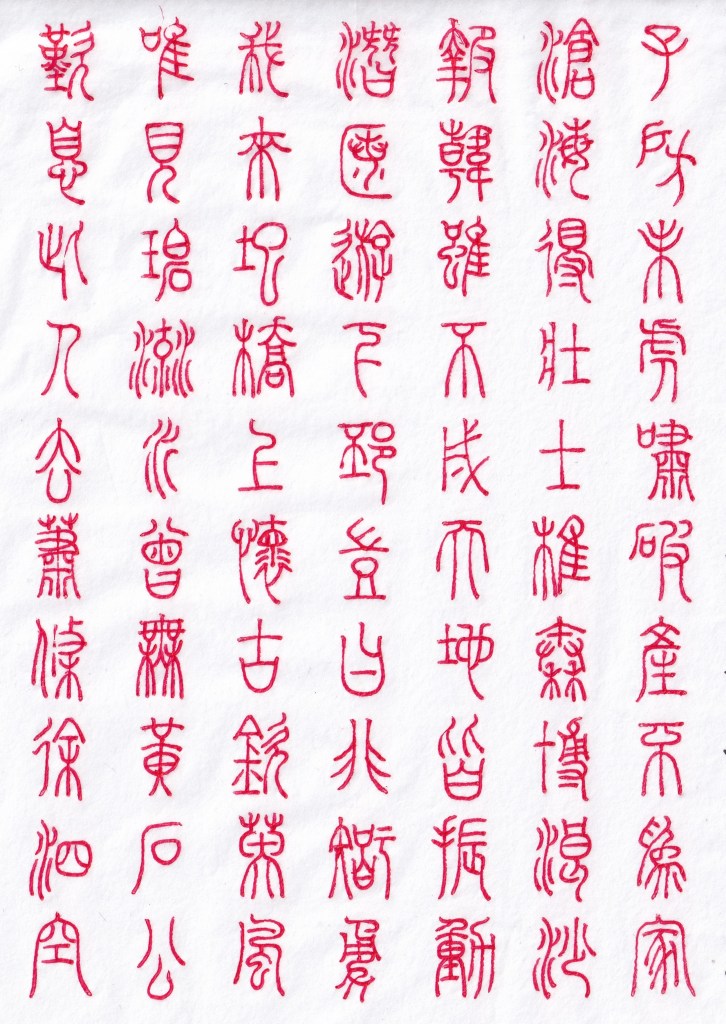 子房未虎嘯破產不為家
滄海得壯士椎秦博浪沙
報韓雖不成天地皆振動
潛匿遊下邳豈曰非智勇
我來圯橋上懷古欽英風
唯見碧流水曾無黃石公
歎息此人去蕭條徐泗空